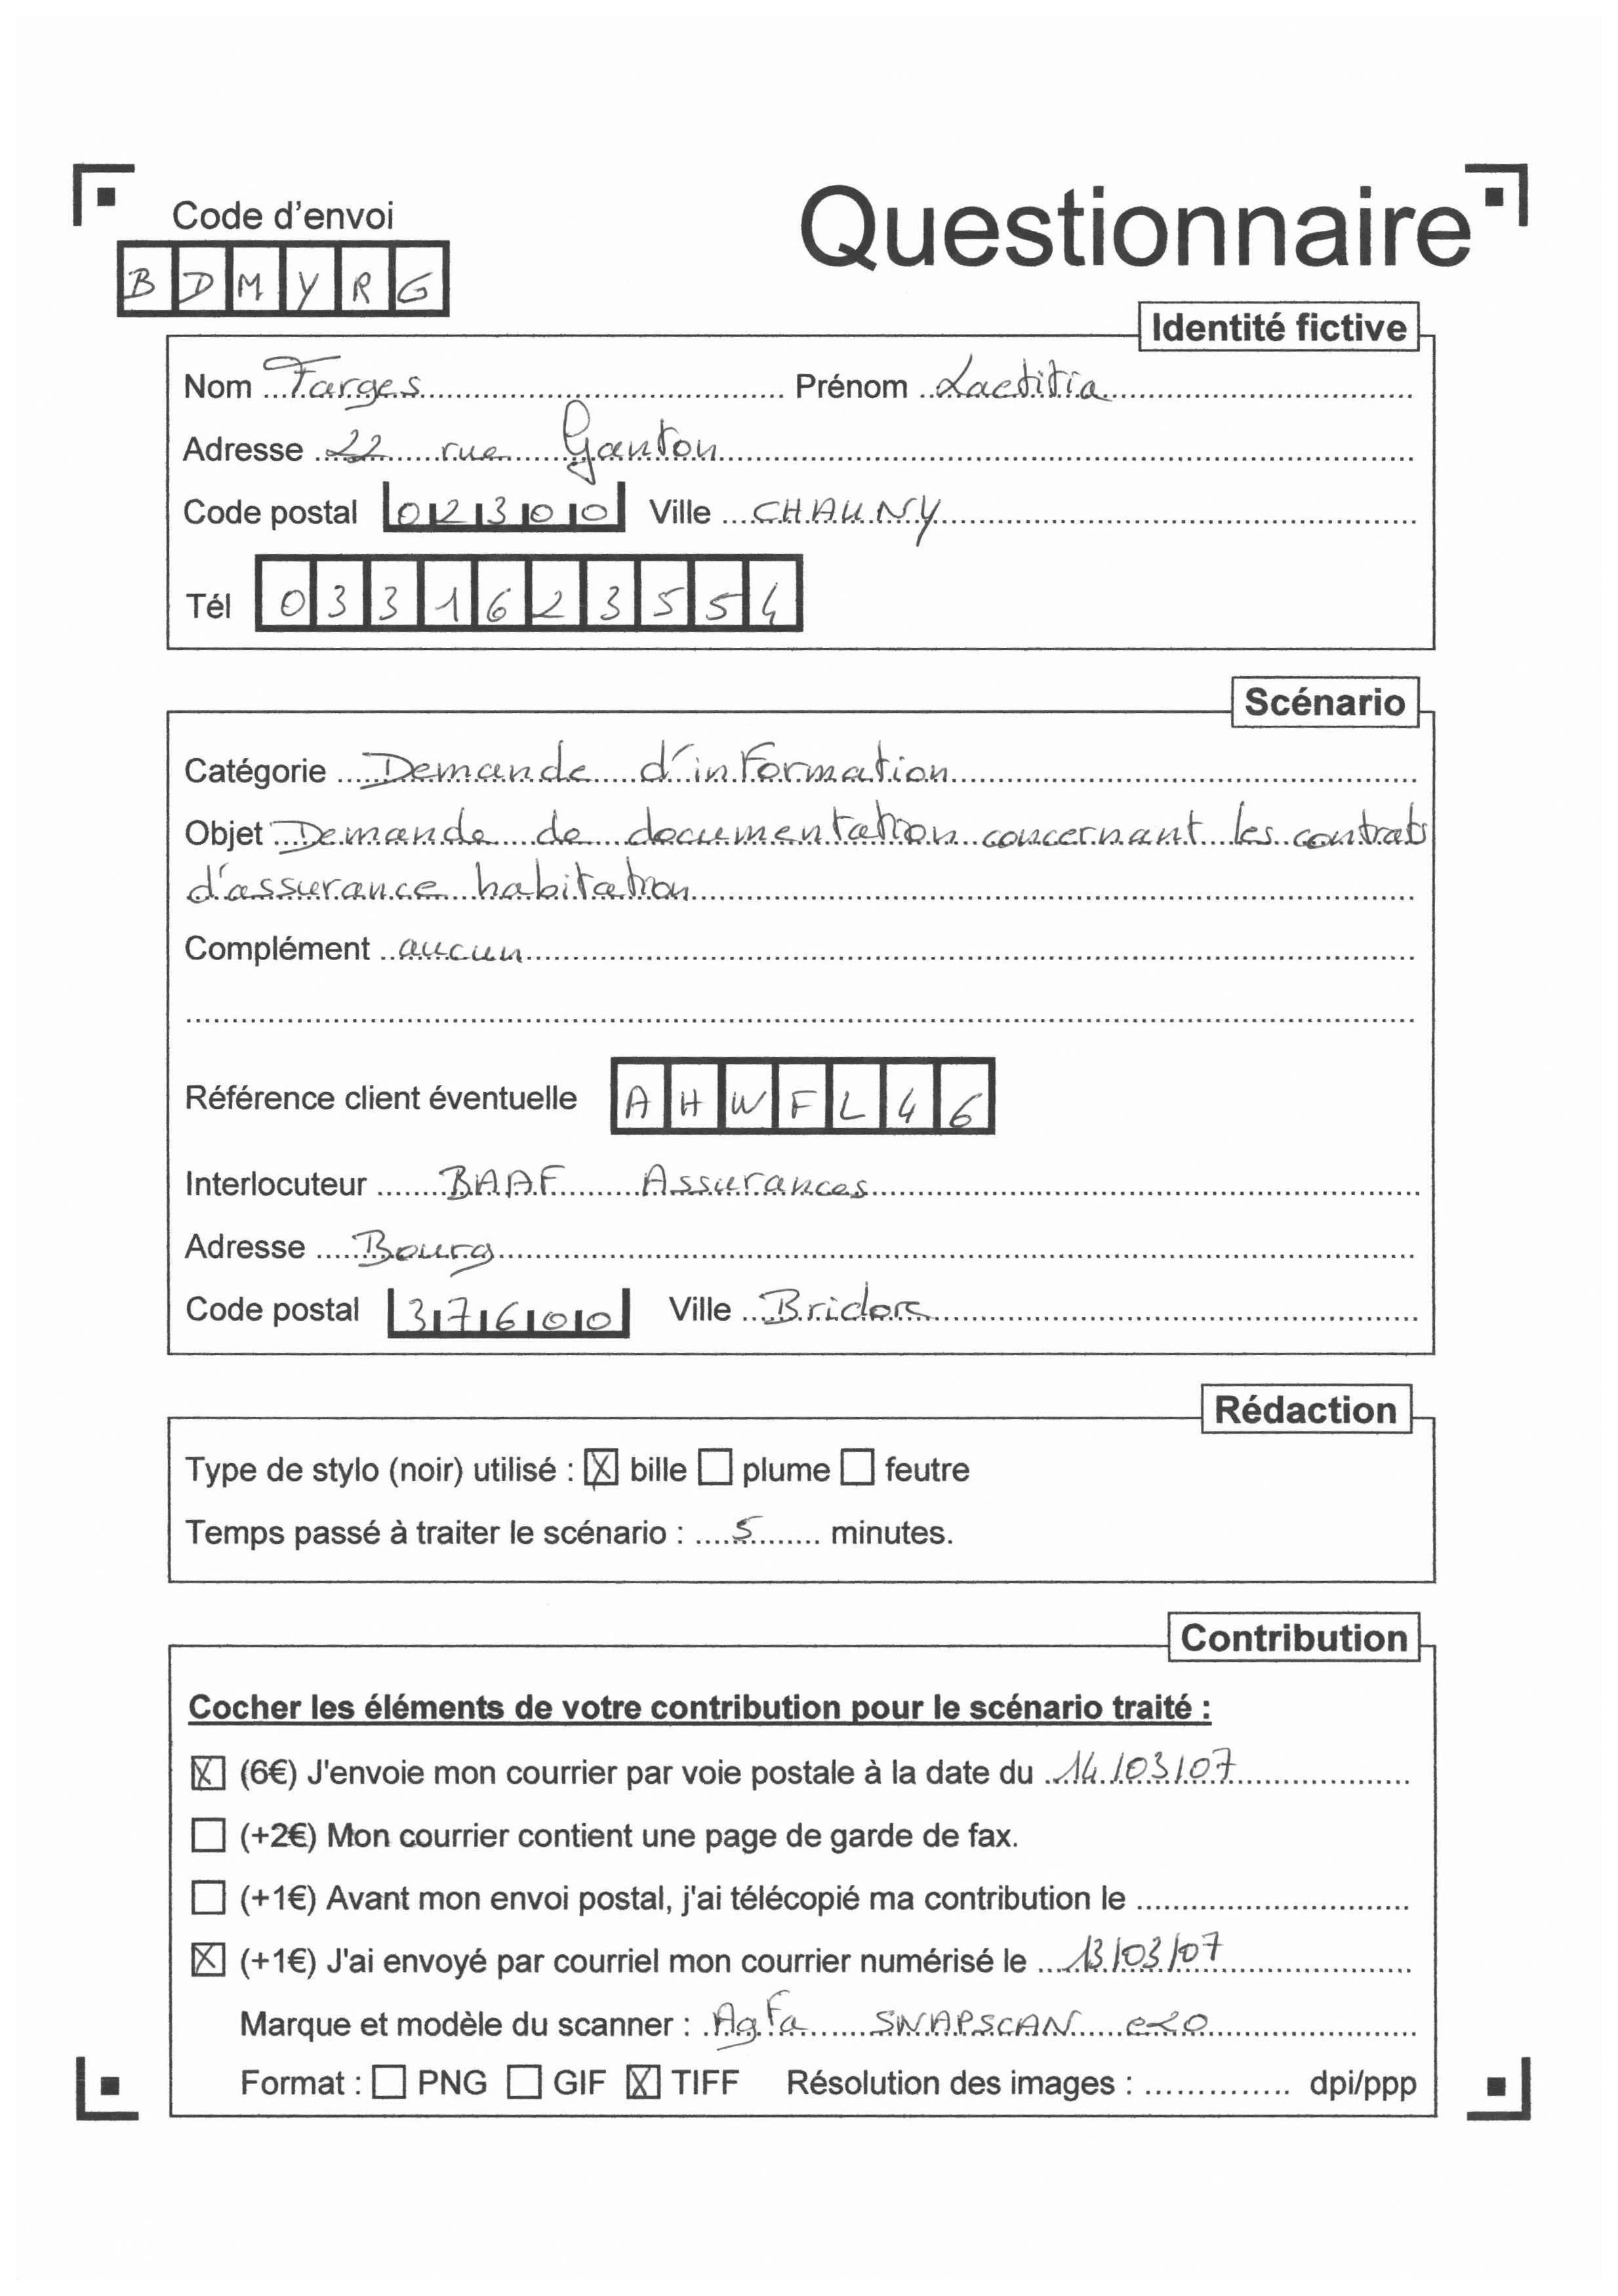 Code d'envoi
Questionnaire
B D M Y R G
Identité fictive
Nom Farges Prénom Laetitia
Adresse 22 rue Ganton
Code postal 02300 Ville CHAUNY
Tél 0331623554
Scénario
Catégorie Demande d'information
Objet Demande de documentation concernant les contrats
d'assurance habitation
Complément aucun
Référence client éventuelle AHWFL46
Interlocuteur BAAF Assurances
Adresse Bourg
Code postal 37600 Ville Bridors
Rédaction
Type de stylo (noir) utilisé : ☒ bille ☐ plume ☐ feutre
Temps passé à traiter le scénario : 5 minutes.
Contribution
Cocher les éléments de votre contribution pour le scénario traité :
☒ (6€) J'envoie mon courrier par voie postale à la date du 14/03/07
☐ (+2€) Mon courrier contient une page de garde de fax.
☐ (+1€) Avant mon envoi postal, j'ai télécopié ma contribution le
☒ (+1€) J'ai envoyé par courriel mon courrier numérisé le 13/03/07
Marque et modèle du scanner : Agfa SNAPSCAN e20
Format : ☐ PNG ☐ GIF ☒ TIFF Résolution des images : dpi/ppp